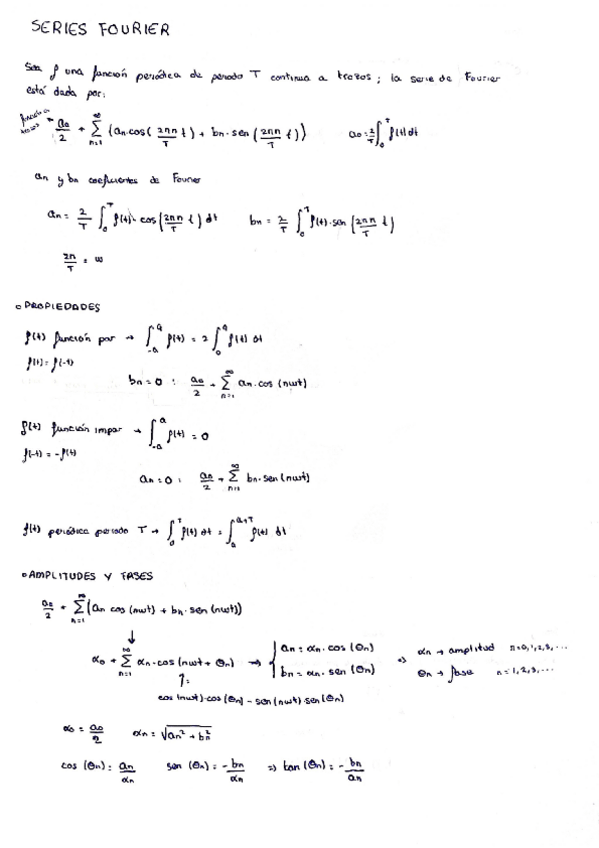 SERIES FOURIER
Sea f una función periódica de periodo T continua a trozos; la serie de Fourier
está dada por:
a₀/2 + Σ_{n=1}^{∞} (an·cos(2πn/T t) + bn·sen(2πn/T t)) a₀ = 2/T ∫₀^T f(t) dt
an y bn coeficientes de Fourier
an = 2/T ∫₀^T f(t)·cos(2πn/T t) dt bn = 2/T ∫₀^T f(t)·sen(2πn/T t)
2π/T = ω
• PROPIEDADES
f(t) función par → ∫_{-a}^{a} f(t) = 2 ∫₀^a f(t) dt
f(t) = f(-t)
bn = 0 : a₀/2 + Σ_{n=1}^{∞} an·cos(nωt)
f(t) función impar → ∫_{-a}^{a} f(t) = 0
f(-t) = -f(t)
an = 0 : a₀/2 + Σ_{n=1}^{∞} bn·sen(nωt)
f(t) periódica periodo T → ∫₀^T f(t) dt = ∫_a^{a+T} f(t) dt
• AMPLITUDES Y FASES
a₀/2 + Σ_{n=1}^{∞} (an cos(nωt) + bn·sen(nωt))
↓
α₀ + Σ_{n=1}^{∞} αn·cos(nωt + θn) → { an = αn·cos(θn) ⇒ αn → amplitud n=0,1,2,3,...
bn = αn·sen(θn) θn → fase n=1,2,3,...
cos(nωt)·cos(θn) - sen(nωt)·sen(θn)
α₀ = a₀/2 αn = √(an² + bn²)
cos(θn) = an/αn sen(θn) = -bn/αn ⇒ tan(θn) = -bn/an